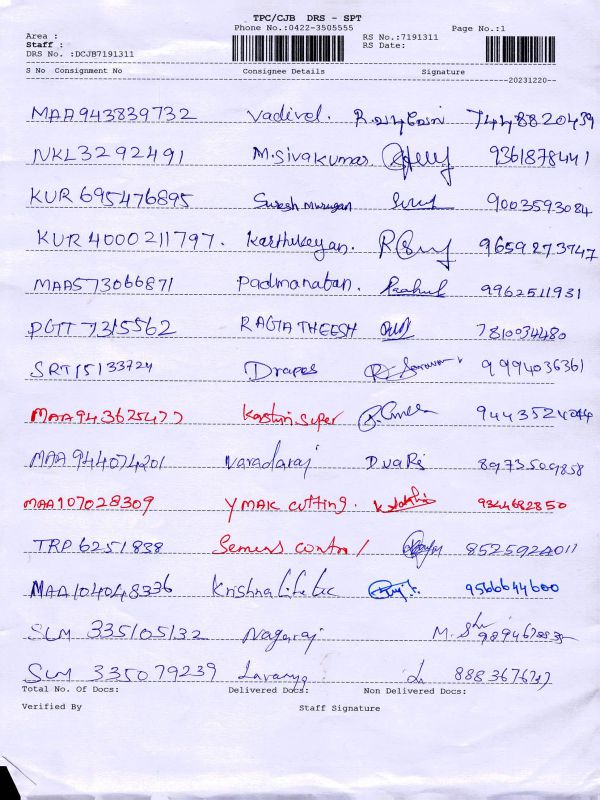 TPC/CJB DRS - SPT
Phone No.:0422-3505555 Page No.:1
Area :
Staff : RS No.:7191311
DRS No. :DCJB7191311 RS Date:
S No Consignment No Consignee Details Signature
20231220
MAA943839732 Vadivel. 7448820439
NKL3292491 M.Sivakumar 9361878441
KUR 695476895 Suresh murugan 9003593084
KUR 4000211797. Karthikeyan. 9659273747
MAA573066871 Padmanaban. 9962511931
PGTT 7315562 RAGIATHEESH 7810034480
SRT15133724 Drapes 9994036361
MAA943625477 Kasturi super
MAA944074201 Varadaraj D.VaRj
MAA107028309 YMAK cutting. 9344682850
TRP 6251838 8525924011
MAA104048336 Krishna life tec 9566644600
SLM 335105132 Nagaraj M.
SLM 335079239 Lavanya
Total No. Of Docs: Delivered Docs: Non Delivered Docs:
Verified By Staff Signature